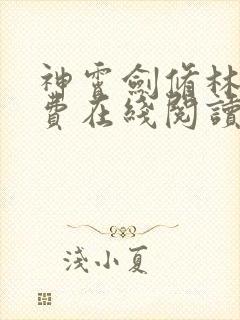 神霄劍脩林
費在綫閱讀
淺小夏